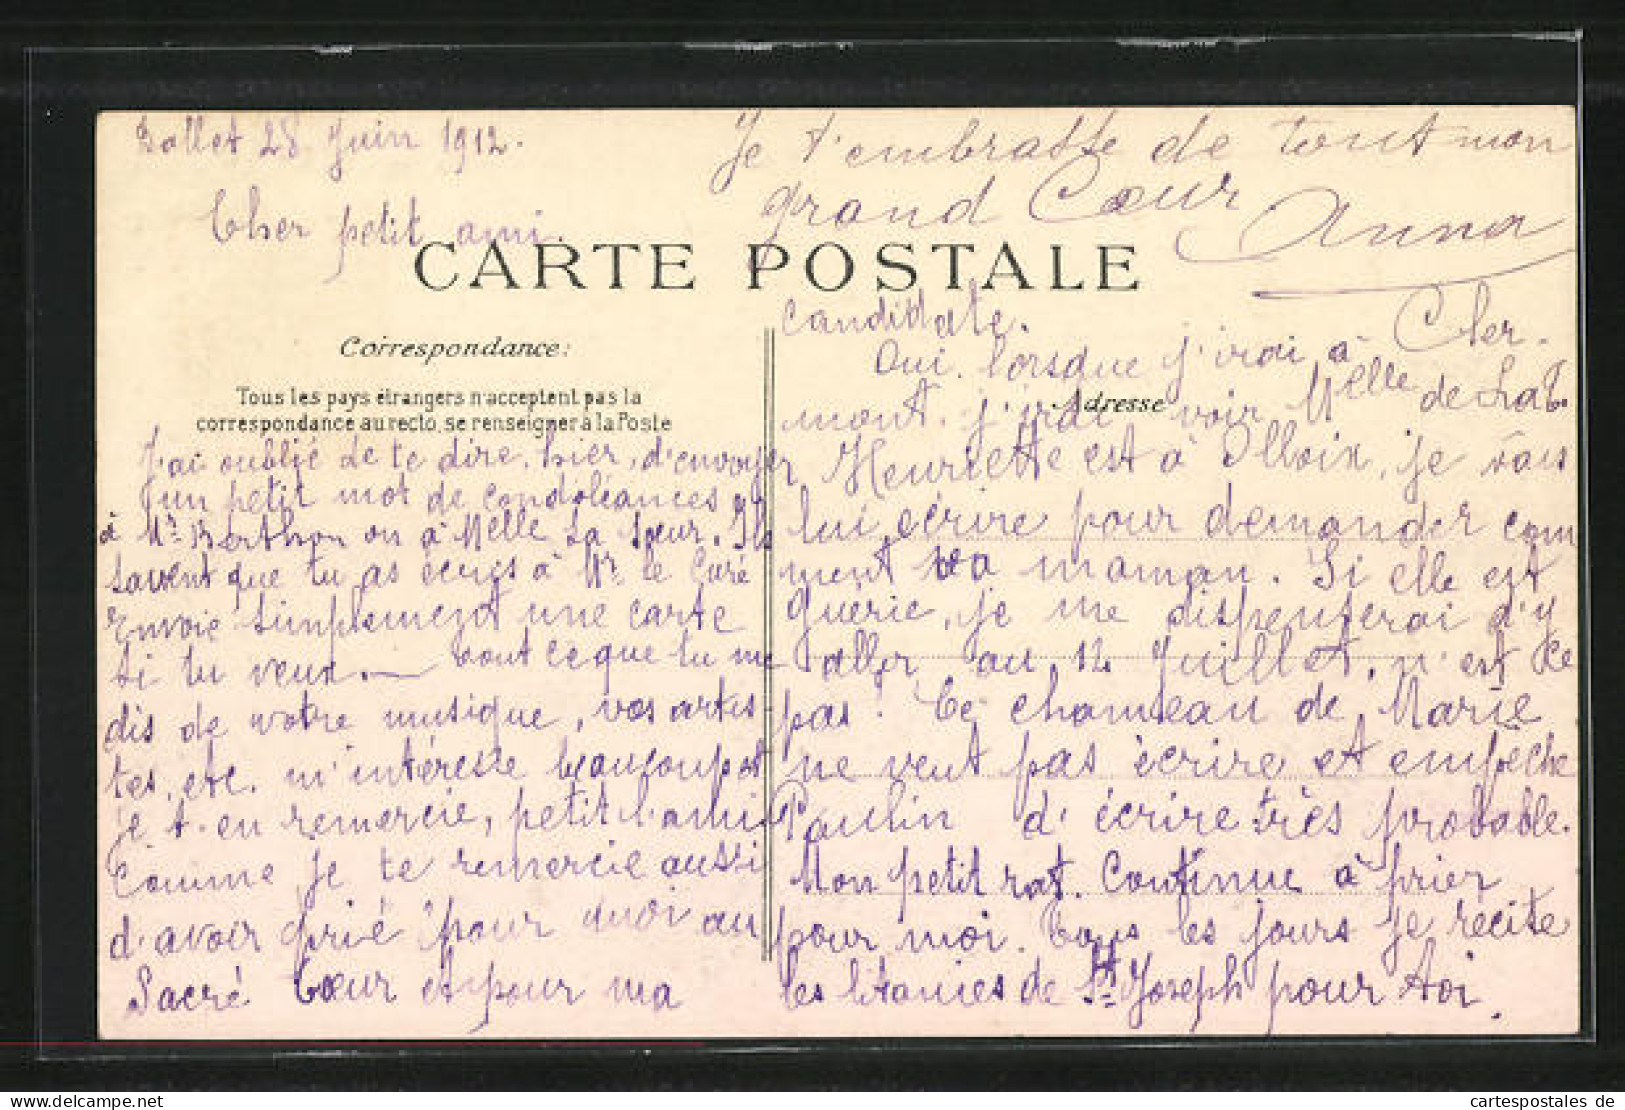 28 Juin 1912.
Cher petit ami.
Je t'embrasse de tout mon
grand Cœur
Anna
CARTE POSTALE
Correspondance:
Tous les pays étrangers n'acceptent pas la
correspondance au recto, se renseigner à la Poste
J'ai oublié de te dire, hier, d'envoyer
un petit mot de condoléances
à Mr Berthon ou à Melle Sa Sœur. Ils
savent que tu as écris à Mr le Curé
Envoie simplement une carte
si tu veux. — Tout ce que tu me
dis de votre musique, vos artis-
tes, etc. m'intéresse beaucoup et
je t'en remercie, petit l'ami
Comme je te remercie aussi
d'avoir prié pour quoi au
Sacré Cœur et pour ma
candidate.
Oui, lorsque j'irai à Cler-
Adresse
mont, j'irai voir Melle de
Henriette est à je vais
lui écrire pour demander com
ment va maman. Si elle est
guérie, je me dispenserai d'y
aller au 12 Juillet, n'est ce
pas! Ce chameau de Marie
ne veut pas écrire et empêche
Paulin d'écrire très probable.
Mon petit rat. Continue à prier
pour moi. Tous les jours je récite
les litanies de St Joseph pour toi.
cartespostales de